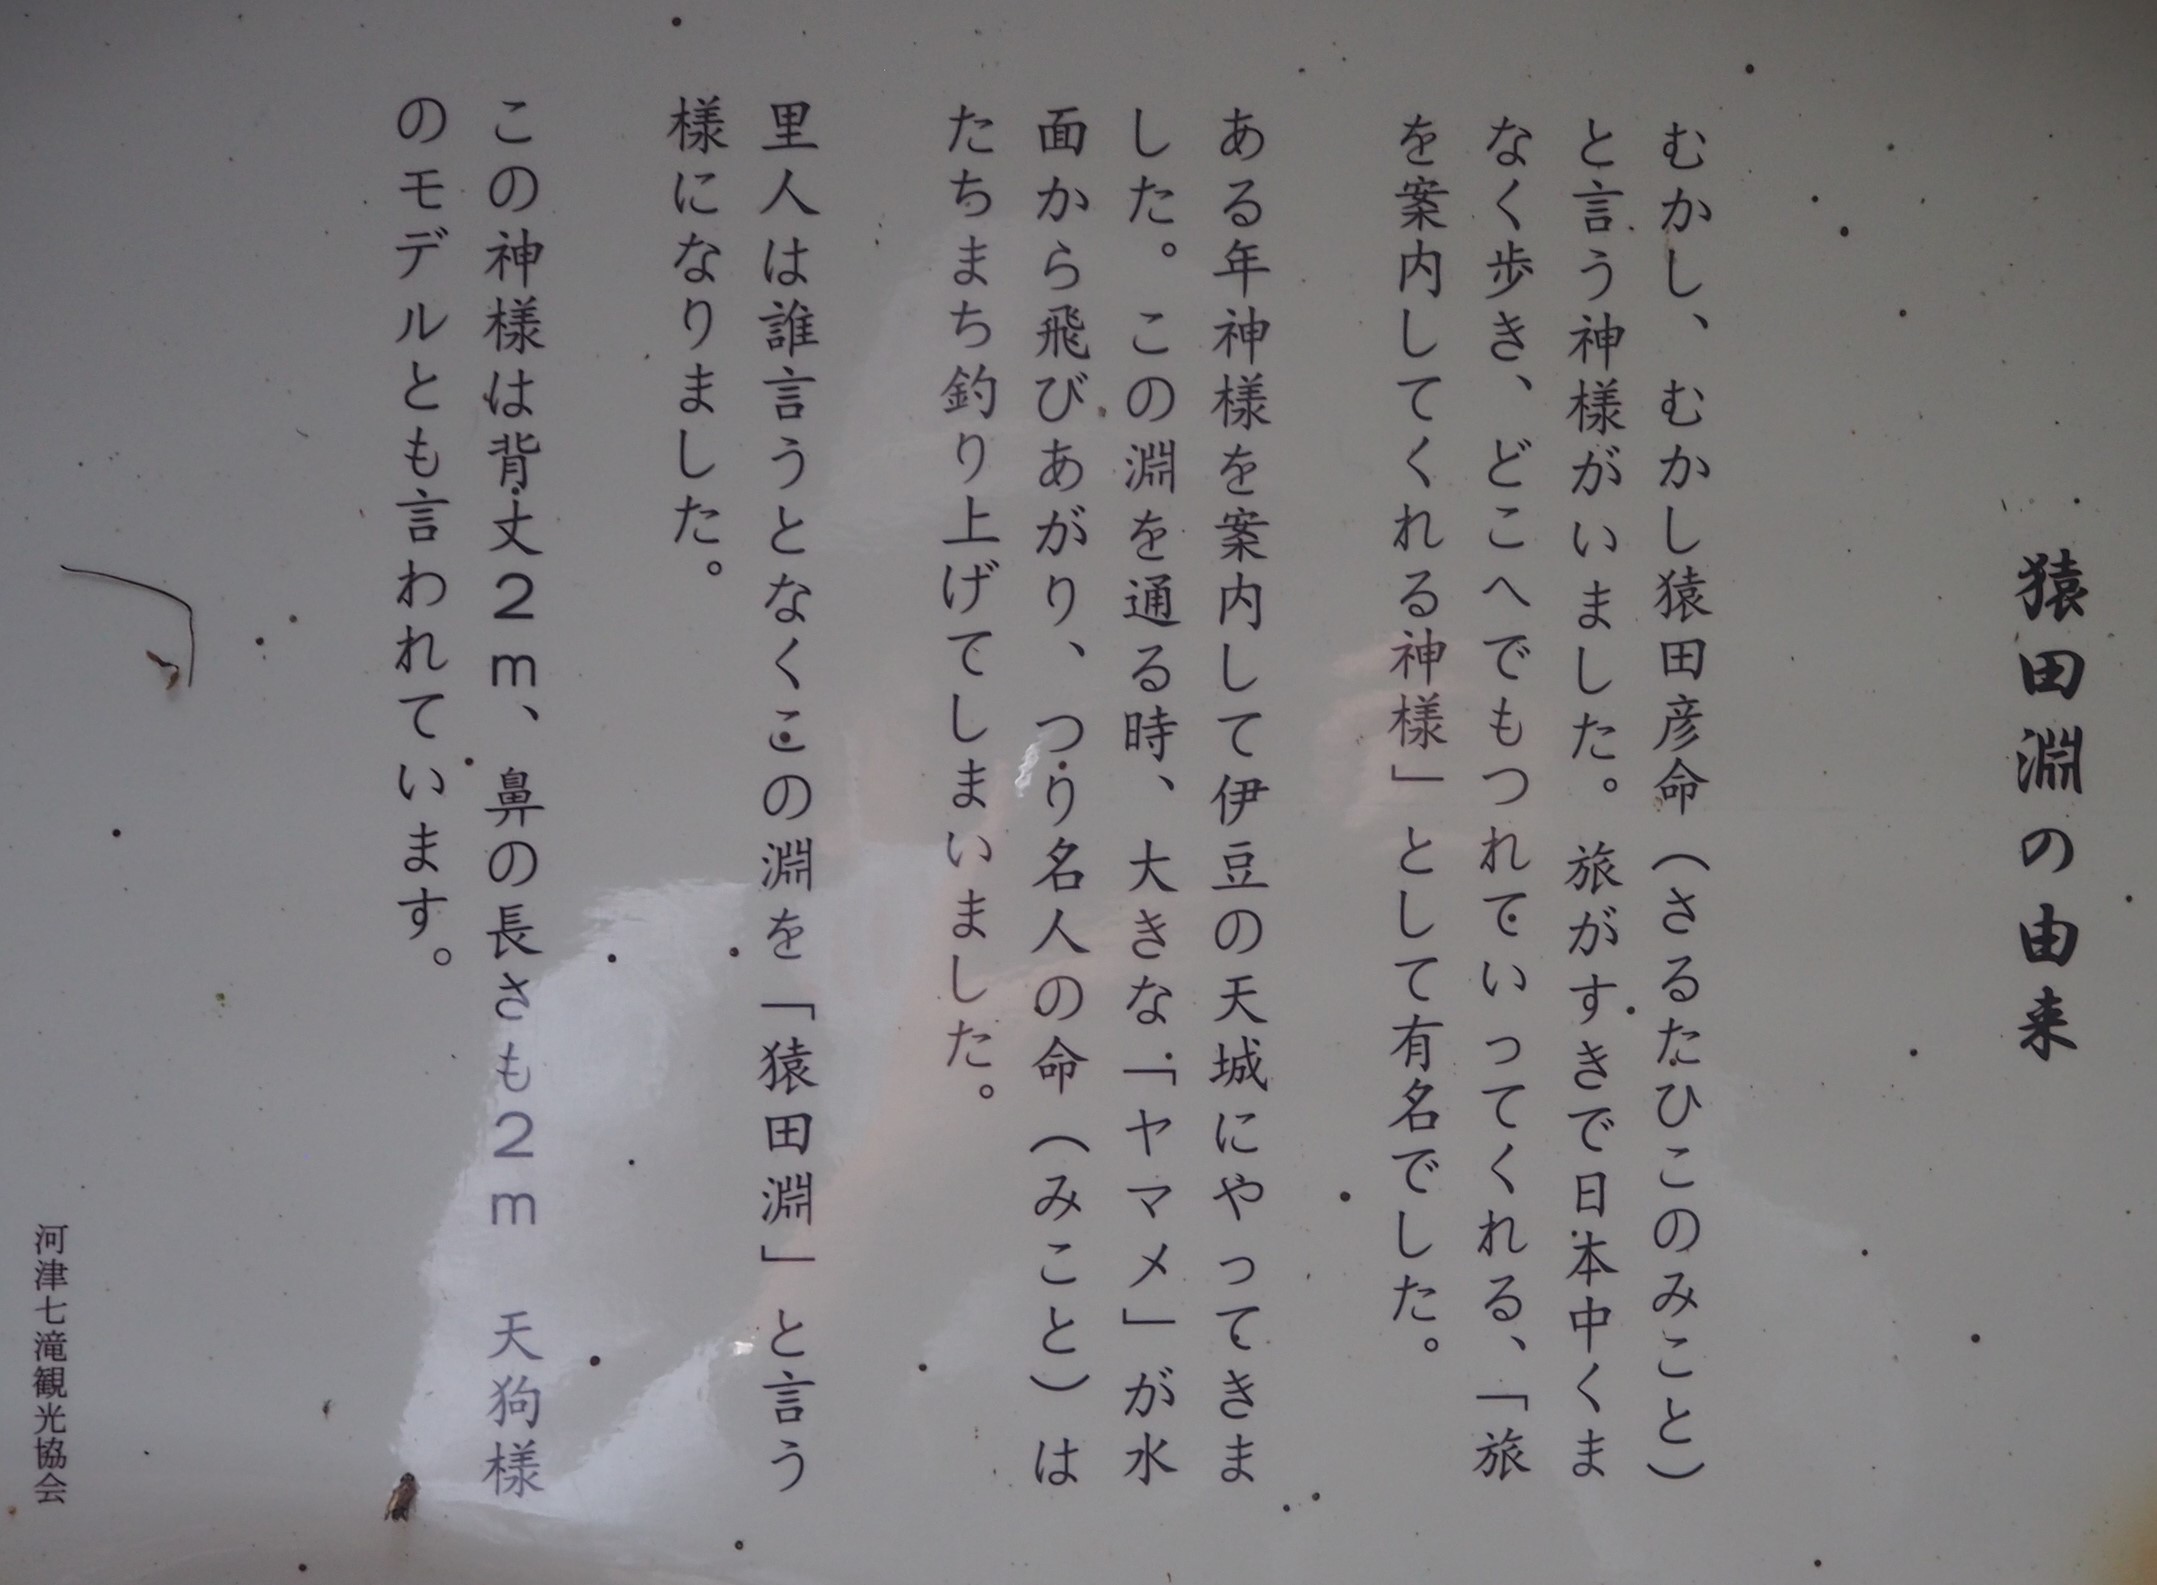 猿田淵の由来
むかし、むかし猿田彦命（さるたひこのみこと）
と言う神様がいました。旅がすきで日本中くま
なく歩き、どこへでもつれていってくれる、「旅
を案内してくれる神様」として有名でした。
ある年神様を案内して伊豆の天城にやってきま
した。この淵を通る時、大きな「ヤマメ」が水
面から飛びあがり、つり名人の命（みこと）は
たちまち釣り上げてしまいました。
里人は誰言うとなくこの淵を「猿田淵」と言う
様になりました。
この神様は背丈２ｍ、鼻の長さも２ｍ　天狗様
のモデルとも言われています。
河津七滝観光協会